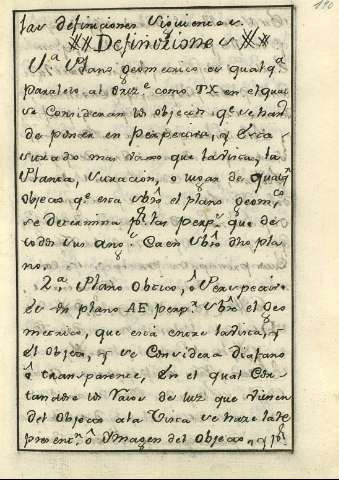 190
las definiciones siguientes.
Definiziones
1.ª Plano geometrico es qualq.ª
paralelo al oriz.te como TX en el qual
se consideran los objectos q.e se han
de poner en perspectiva, y esta
situado mas vaxo que la vista, la
Planta, situacion, o lugar de qualq.r
objeto q.e esta sobre el plano geom.co
se determina p.r las perp.s que de
todos sus ang.s caen sobre dho pla
no.
2.ª Plano Obtico, ô Perspectivo
es un plano AE perp.r sobre el geo
metrico, que está entre la vista, y
el objeto, y se considera diafano
ô transparente, en el qual cor-
tandose los raios de luz que vienen
del objeto a la vista se haze la re
present.n ô Ymagen del objeto, y p.r